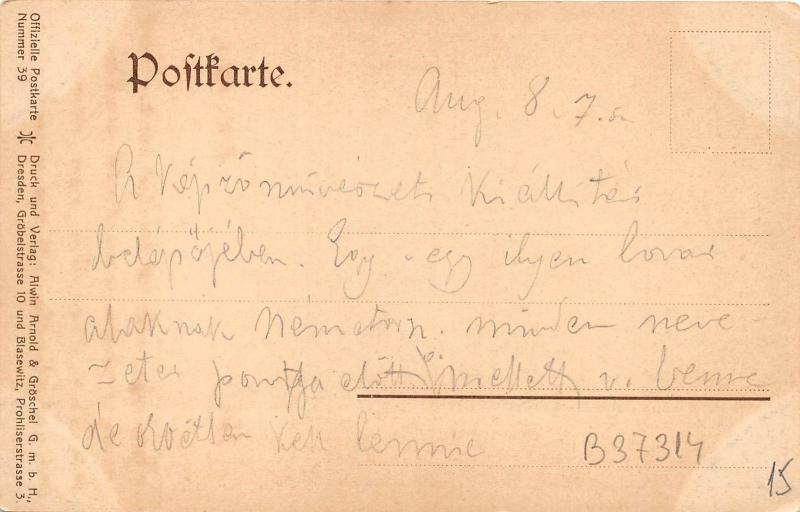 Postkarte.
Aug. 8. 7.
A Képzőművészeti Kiállítás
belépőjében. Egy-egy ilyen lovas
alaknak Németorsz. minden neve-
zetes pontja előtt, mellett v. benne
de kell lennie
B37314
15
Offizielle Postkarte Druck und Verlag: Alwin Arnold & Gröschel G. m. b. H.,
Nummer 39 Dresden, Gröbelstrasse 10 und Blasewitz, Prohliserstrasse 3.